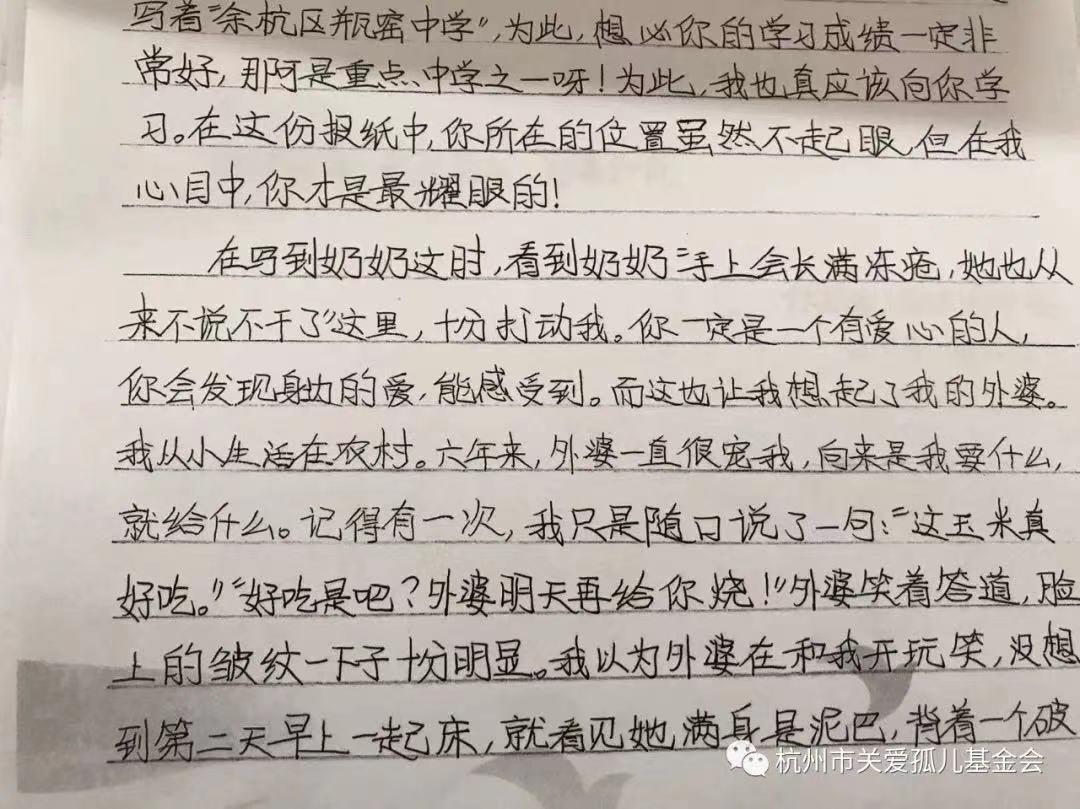 写着“余杭区瓶窑中学”,为此,想必你的学习成绩一定非
常好,那可是重点中学之一呀!为此,我也真应该向你学
习。在这份报纸中,你所在的位置虽然不起眼,但在我
心目中,你才是最耀眼的!
在写到奶奶这时,看到奶奶“手上会长满冻疮,她也从
来不说不干了”这里,十分打动我。你一定是一个有爱心的人,
你会发现身边的爱,能感受到。而这也让我想起了我的外婆。
我从小生活在农村。六年来,外婆一直很宠我,向来是我要什么,
就给什么。记得有一次,我只是随口说了一句:“这玉米真
好吃。”“好吃是吧?外婆明天再给你烧!”外婆笑着答道,脸
上的皱纹一下子十分明显。我以为外婆在和我开玩笑,没想
到第二天早上一起床,就看见她满身是泥巴,背着一个破
杭州市关爱孤儿基金会